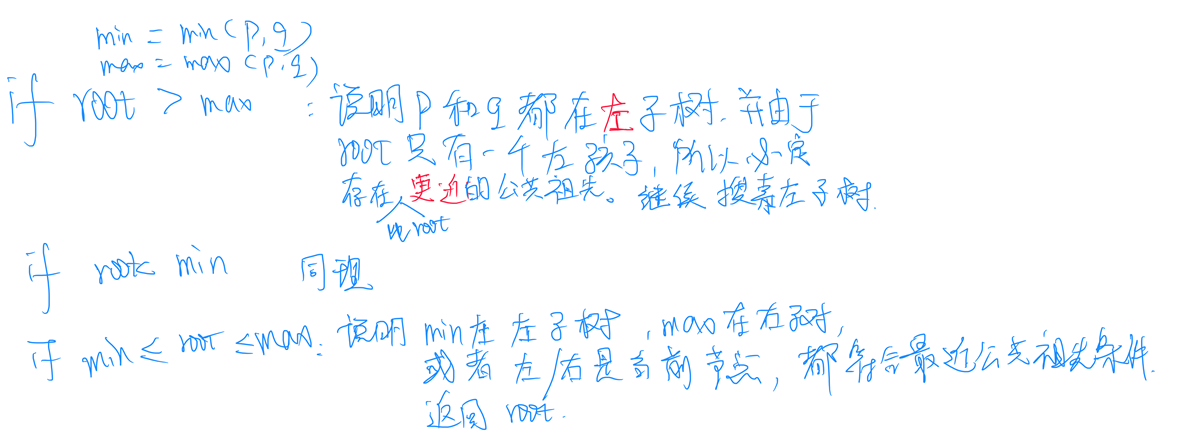 min = min(p,q)
max = max(p,q)
if root > max : 说明p和q都在左子树. 并由于
root只有一个左孩子, 所以必定
存在更近的公共祖先。继续搜索左子树.
比root
if root< min 同理
if min ≤ root ≤max: 说明min在左子树, max在右子树,
或者左/右是当前节点, 都符合最近公共祖先条件.
返回 root.